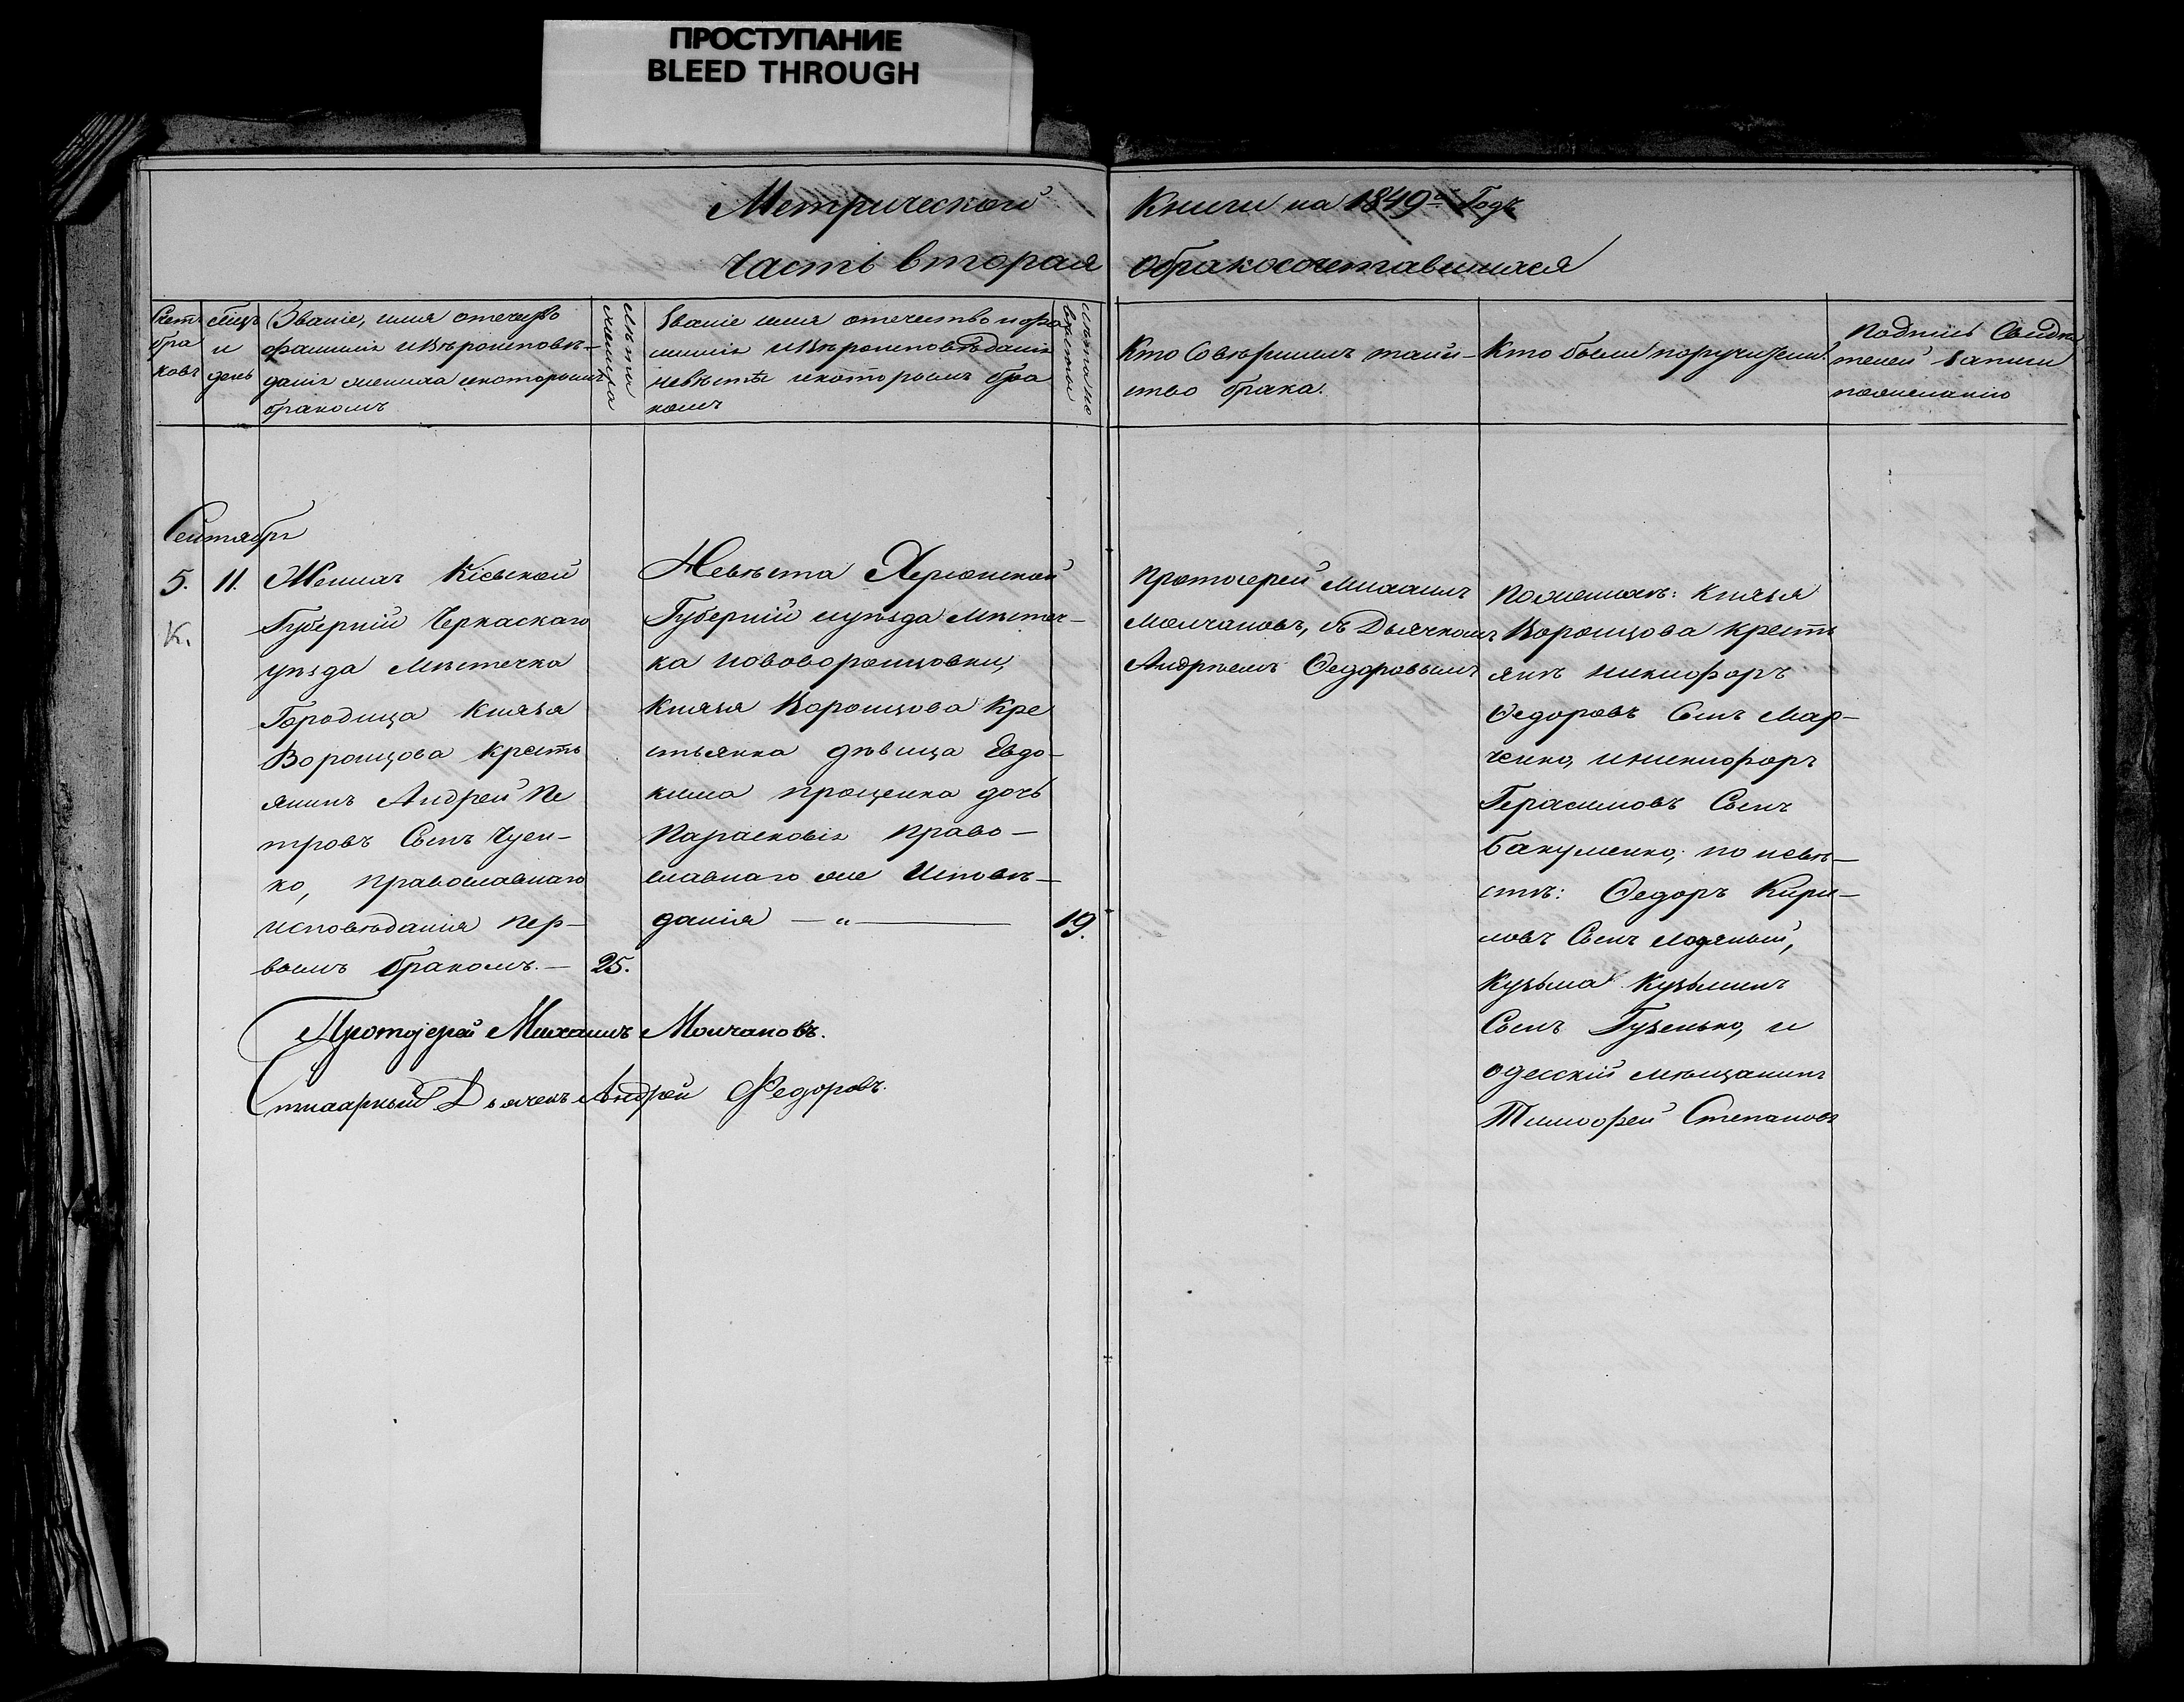 ПРОСТУПАНИЕ
BLEED THROUGH
Метрической Книги на 1849й Годъ
Часть вторая обракосочетавшихся
Счетъ браковъ
Мѣцъ и день
Званіе, имя отечество
фамилія и вѣроисповѣ-
данія жениха и которымъ
бракомъ
лѣта жениха
Званіе имя отечество и фа
милія и вѣроисповѣданія
невѣсты и которымъ бра
комъ
лѣта невѣсты
Кто Совершилъ таин-
ство брака.
Кто были поручители.
Подпись Свидѣ
телей записи
по желанію
Сентябрь
5. 11.
К.
Женихъ Кіевской
Губерніи Черкаскаго
уѣзда Мѣстечка
Городища Князя
Воронцова кресть
янинъ Андрей Пе
тровъ Сынъ Чуен-
ко, православнаго
исповѣданія пер-
вымъ бракомъ.— 25.
Невѣста Херсонской
Губерніи и уѣзда Мѣстеч-
ка Нововоронцовки,
Князя Воронцова Кре
стьянка дѣвица Евдо-
кима Проценка дочь
Парасковія Право-
славнаго же Исповѣ-
данія — " — 19.
Протоіерей Михаилъ
Молчановъ, съ Дьячкомъ
Андреемъ Федоровымъ
По женихѣ: Князя
Воронцова кресть
яне Никифоръ
Федоровъ Сынъ Мар-
ченко, и Никифоръ
Герасимовъ Сынъ
Бакуменко; по невѣ-
стѣ: Федоръ Кири-
ловъ Сынъ Лодяный,
Кузьма Кузьминъ
Сынъ Гузенько, и
одесскій мѣщанинъ
Тимофей Степановъ
Протоіерей Михаилъ Молчановъ.
Дьячекъ Андрей Федоровъ.